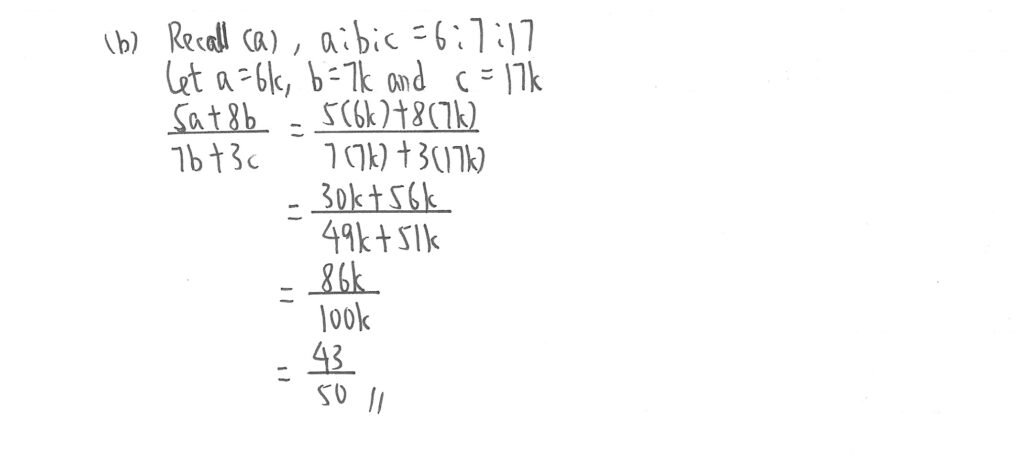 (b) Recall (a), a:b:c = 6:7:17
Let a=6k, b=7k and c = 17k
5a+8b / 7b+3c = 5(6k)+8(7k) / 7(7k)+3(17k)
= 30k+56k / 49k+51k
= 86k / 100k
= 43 / 50 //